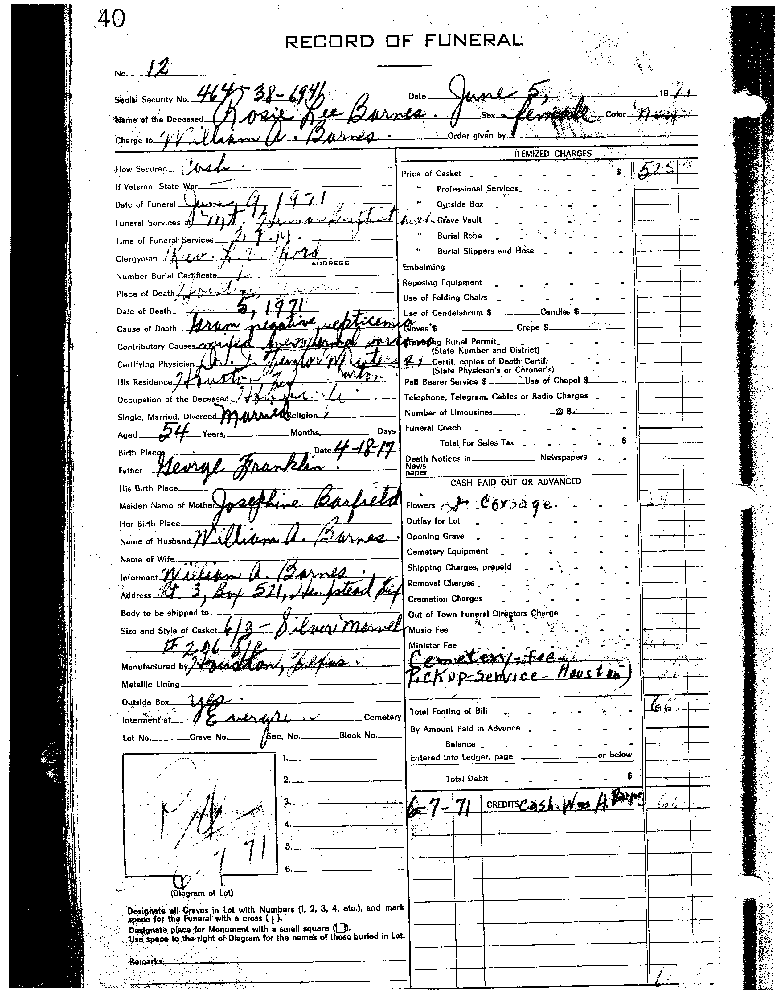 40
RECORD OF FUNERAL
No. 12
Social Security No. 464-38-6941 Date June 5, 1971
Name of the Deceased Rosie Lee Barnes. Sex female Color
Charge to William A. Barnes. Order given by
How Secured Cash
If Veteran, State War
Date of Funeral June 9, 1971
Funeral Services at Mt.
Time of Funeral Services
Clergyman Rev.
ADDRESS
Number Burial Certificate
Place of Death Houston
Date of Death 5, 1971
Cause of Death Gram negative septicemia
Contributory Causes
Certifying Physician Dr.
His Residence Houston, Tex
Occupation of the Deceased
Single, Married, Divorced Married Religion
Aged 54 Years, Months, Days
Birth Place Date 4-18-17
Father George Franklin.
His Birth Place
Maiden Name of Mother Josephine Barfield
Her Birth Place
Name of Husband William A. Barnes.
Name of Wife
Informant William A. Barnes.
Address Rt 3, Box 521, Hempstead Tex
Body to be shipped to
Size and Style of Casket 6/3 - Silver
Manufactured by Houston, Texas.
Metallic Lining
Outside Box yes.
Interment at Cemetery
Lot No. Grave No. Sec. No. Block No.
1.
2.
3.
4.
5.
6.
6 7 71
(Diagram of Lot)
Designate all Graves in Lot with Numbers (1, 2, 3, 4, etc.), and mark
space for the Funeral with a cross (†).
Designate place for Monument with a small square (☐).
Use space to the right of Diagram for the names of those buried in Lot.
Remarks
ITEMIZED CHARGES
Price of Casket $ 525
" Professional Services
" Outside Box
" Grave Vault
" Burial Robe
" Burial Slippers and Hose
Embalming
Reposing Equipment
Use of Folding Chairs
Use of Candelabrum $ Candles $
Gloves $ Crepe $
Burial Permit
(State Number and District)
Certif. copies of Death Certif.
(State Physician's or Coroner's)
Pall Bearer Service $ Use of Chapel $
Telephone, Telegram, Cables or Radio Charges
Number of Limousines @ $
Funeral Coach
Total For Sales Tax $
Death Notices in Newspapers
News
paper
CASH PAID OUT OR ADVANCED
Flowers Corsage.
Outlay for Lot
Opening Grave
Cemetery Equipment
Shipping Charges, prepaid
Removal Charges
Cremation Charges
Out of Town Funeral Directors Charge
Music Fee
Minister Fee
Cemetery-Fee
Pickup-Service-Houston)
Total Footing of Bill
By Amount Paid in Advance
Balance
Entered into Ledger, page or below
Total Debit $
6-7-71 CREDITS Cash. Wm A Barnes